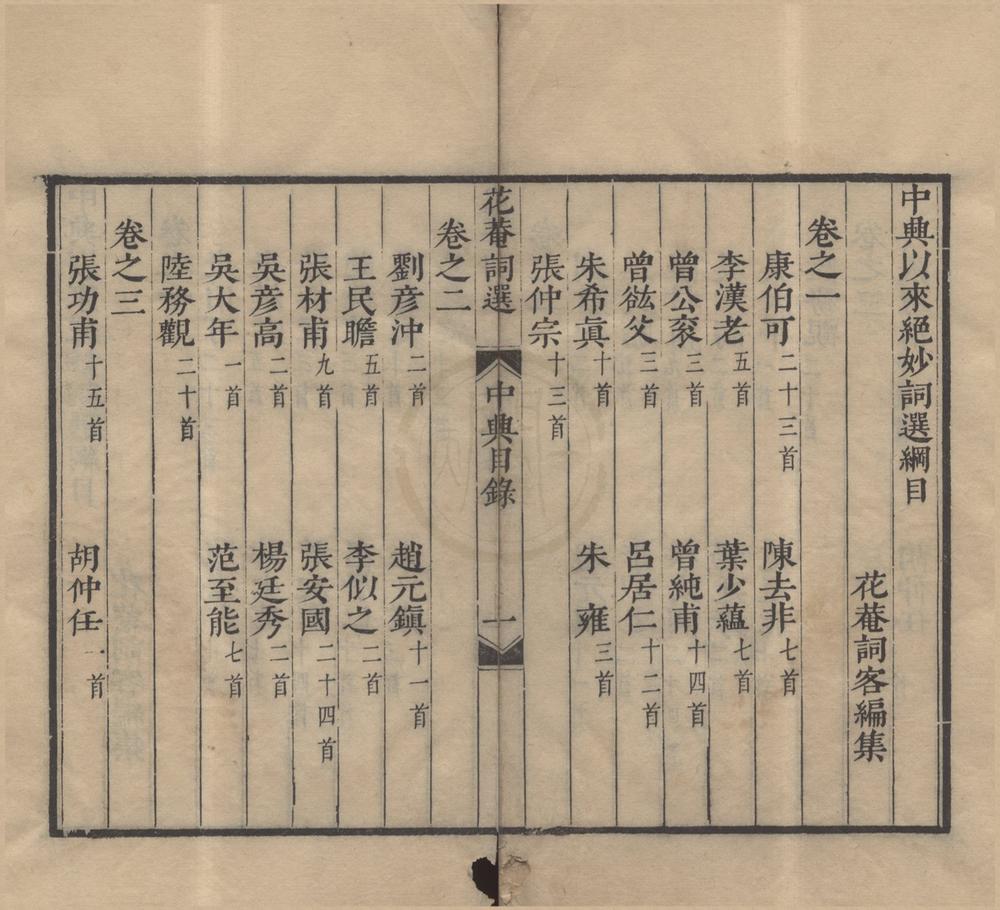 中興以來絕妙詞選綱目
花菴詞客編集
卷之一
康伯可二十三首 陳去非七首
李漢老五首 葉少蘊七首
曾公袞三首 曾純甫十四首
曾紘父三首 呂居仁十二首
朱希眞十首 朱雍三首
張仲宗十三首
花菴詞選 中興目錄 一
卷之二
劉彥沖二首 趙元鎮十一首
王民瞻五首 李似之二首
張材甫九首 張安國二十四首
吳彥高二首 楊廷秀二首
吳大年一首 范至能七首
陸務觀二十首
卷之三
張功甫十五首 胡仲任一首